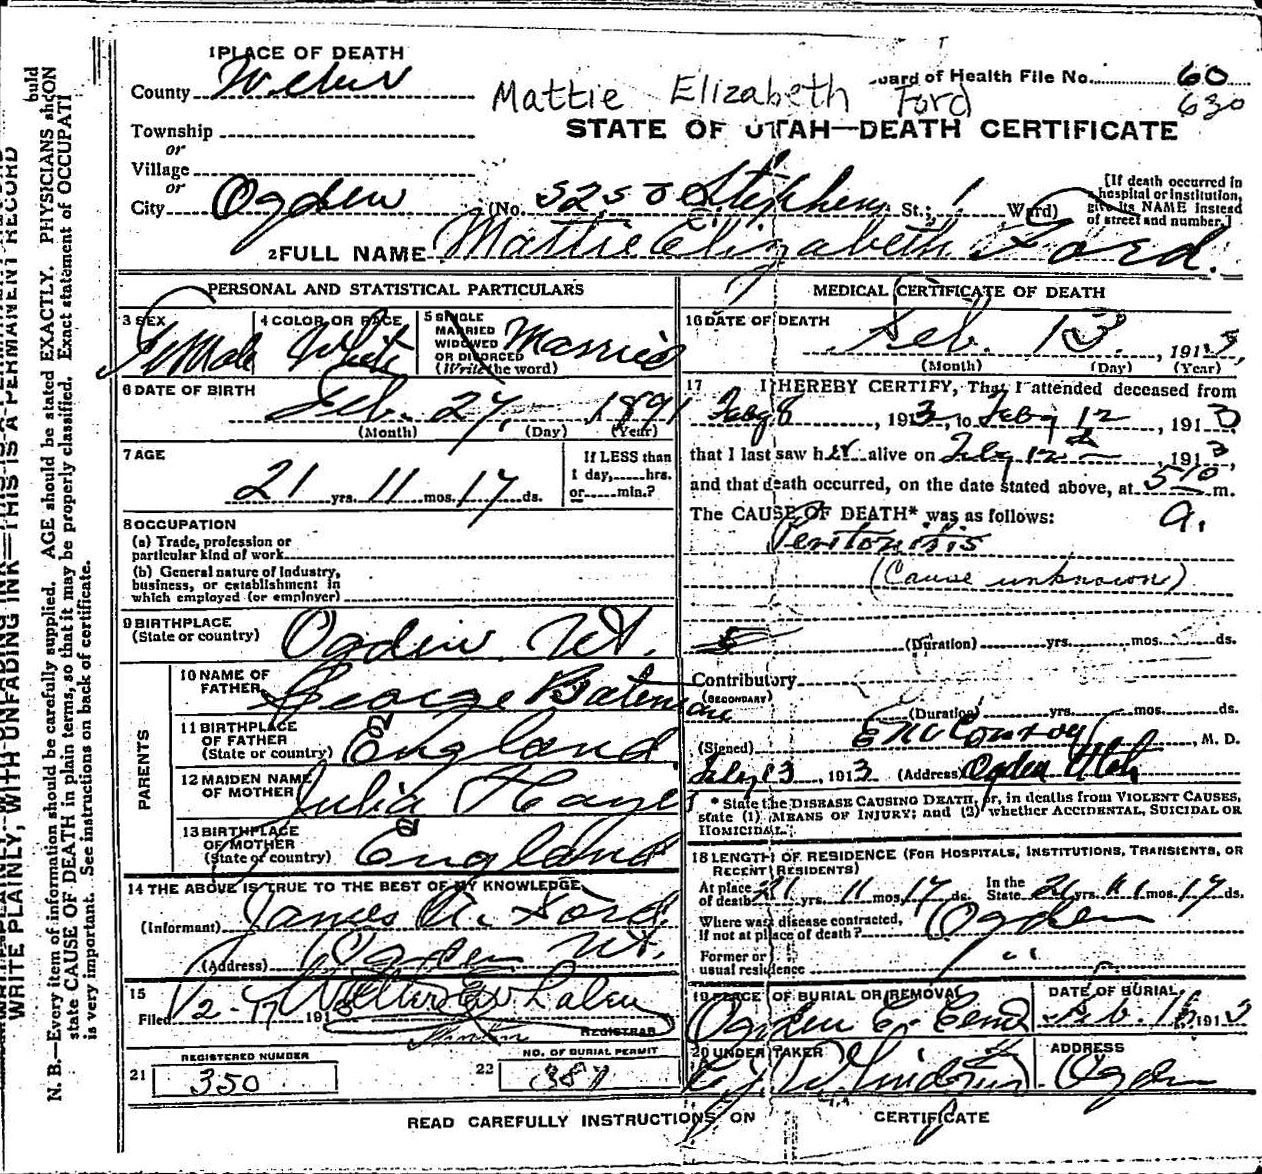 1 PLACE OF DEATH
County Weber
Mattie Elizabeth Ford
oard of Health File No. 60
630
Township
or
Village
or
STATE OF UTAH—DEATH CERTIFICATE
City Ogden (No. 3250 Stephens St.; 1 Ward)
[If death occurred in
a hospital or institution,
give its NAME instead
of street and number.]
2 FULL NAME Mattie Elizabeth Ford.
PERSONAL AND STATISTICAL PARTICULARS
3 SEX Female
4 COLOR OR RACE White
5 SINGLE
MARRIED
WIDOWED
OR DIVORCED
(Write the word) Married
6 DATE OF BIRTH
Feb. 27, 1891
(Month) (Day) (Year)
7 AGE
21 yrs. 11 mos. 17 ds.
If LESS than
1 day, hrs.
or min.?
8 OCCUPATION
(a) Trade, profession or
particular kind of work
(b) General nature of Industry,
business, or establishment in
which employed (or employer)
9 BIRTHPLACE
(State or country) Ogden Ut.
PARENTS
10 NAME OF
FATHER George Bateman
11 BIRTHPLACE
OF FATHER
(State or country) England
12 MAIDEN NAME
OF MOTHER Julia Hayes
13 BIRTHPLACE
OF MOTHER
(State or country) England
14 THE ABOVE IS TRUE TO THE BEST OF MY KNOWLEDGE
(Informant) James A. Ford
(Address) Ogden Ut.
15
Filed 2-17 191
REGISTRAR
REGISTERED NUMBER
21 350
NO. OF BURIAL PERMIT
22 387
MEDICAL CERTIFICATE OF DEATH
16 DATE OF DEATH
Feb. 13. 1913,
(Month) (Day) (Year)
17 I HEREBY CERTIFY, That I attended deceased from
Feby 8, 1913, to Feby 12, 1913
that I last saw her alive on Feby 12th, 1913,
and that death occurred, on the date stated above, at 5 10 m.
The CAUSE OF DEATH* was as follows: a.
Peritonitis
(Cause unknown)
(Duration) yrs. mos. ds.
Contributory
(SECONDARY)
(Duration) yrs. mos. ds.
(Signed) Conroy, M. D.
Feby 13, 1913 (Address) Ogden Utah
* State the DISEASE CAUSING DEATH, or, in deaths from VIOLENT CAUSES,
state (1) MEANS OF INJURY; and (2) whether ACCIDENTAL, SUICIDAL OR
HOMICIDAL.
18 LENGTH OF RESIDENCE (FOR HOSPITALS, INSTITUTIONS, TRANSIENTS, OR
RECENT RESIDENTS)
At place
of death 21 yrs. 11 mos. 17 ds.
In the
State 21 yrs. 11 mos. 17 ds.
Where was disease contracted,
If not at place of death? Ogden
Former or
usual residence "
19 PLACE OF BURIAL OR REMOVAL
Ogden City Cem
DATE OF BURIAL
Feb. 16 1913
20 UNDERTAKER
ADDRESS
Ogden
READ CAREFULLY INSTRUCTIONS ON CERTIFICATE
WRITE PLAINLY, WITH UNFADING INK—THIS IS A PERMANENT RECORD
N. B.—Every item of information should be carefully supplied. AGE should be stated EXACTLY. PHYSICIANS should
state CAUSE OF DEATH in plain terms, so that it may be properly classified. Exact statement of OCCUPATI ON
is very important. See instructions on back of certificate.